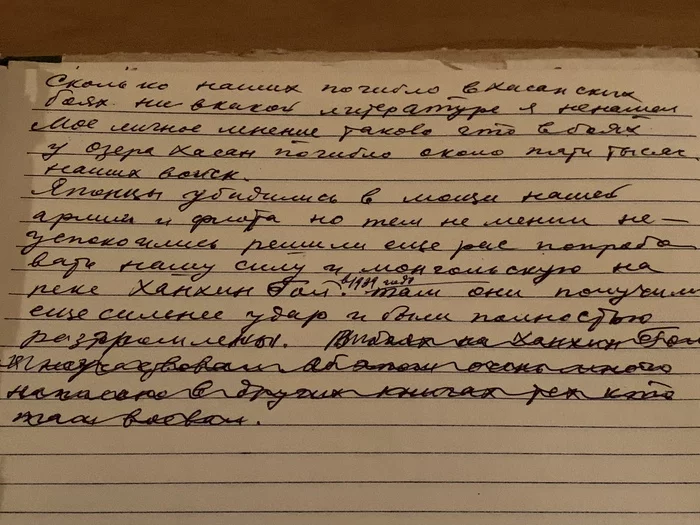 Сколько наших погибло в хасанских
боях ни в какой литературе я ненашел
Мое личное мнение таково что в боях
у озера Хасан погибло около пяти тысяч
наших войск.
Японцы убидились в мощи нашей
армии и флота но тем не мении не-
успокоились решили еще рас попробо
вать нашу силу и монгольскую на
реке Ханхин Гол. в 1939 году Там они получили
еще сильнее удар и были полностью
разгромлены. В боях на Ханхин Гол
я неучаствовал об этом очень много
написано в других книгах тех кто
там воевал.